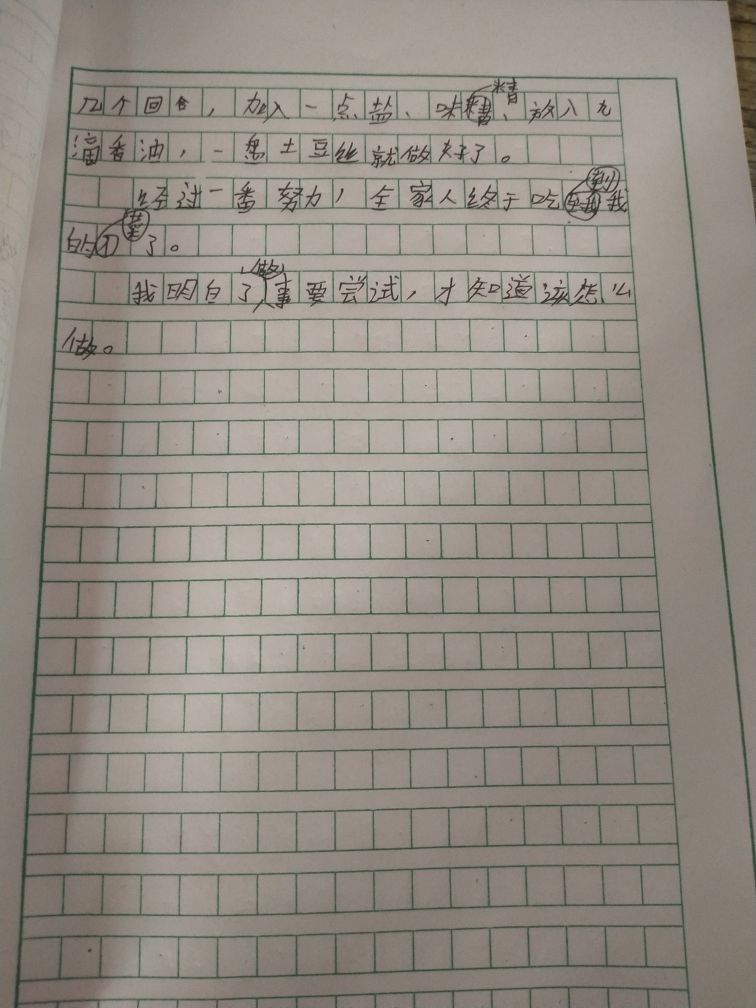 几个回合，加入一点盐、味精、放入几
滴香油，一盘土豆丝就做好了。
经过一番努力，全家人终于吃到我
的菜了。
我明白了做事要尝试，才知道该怎么
做。